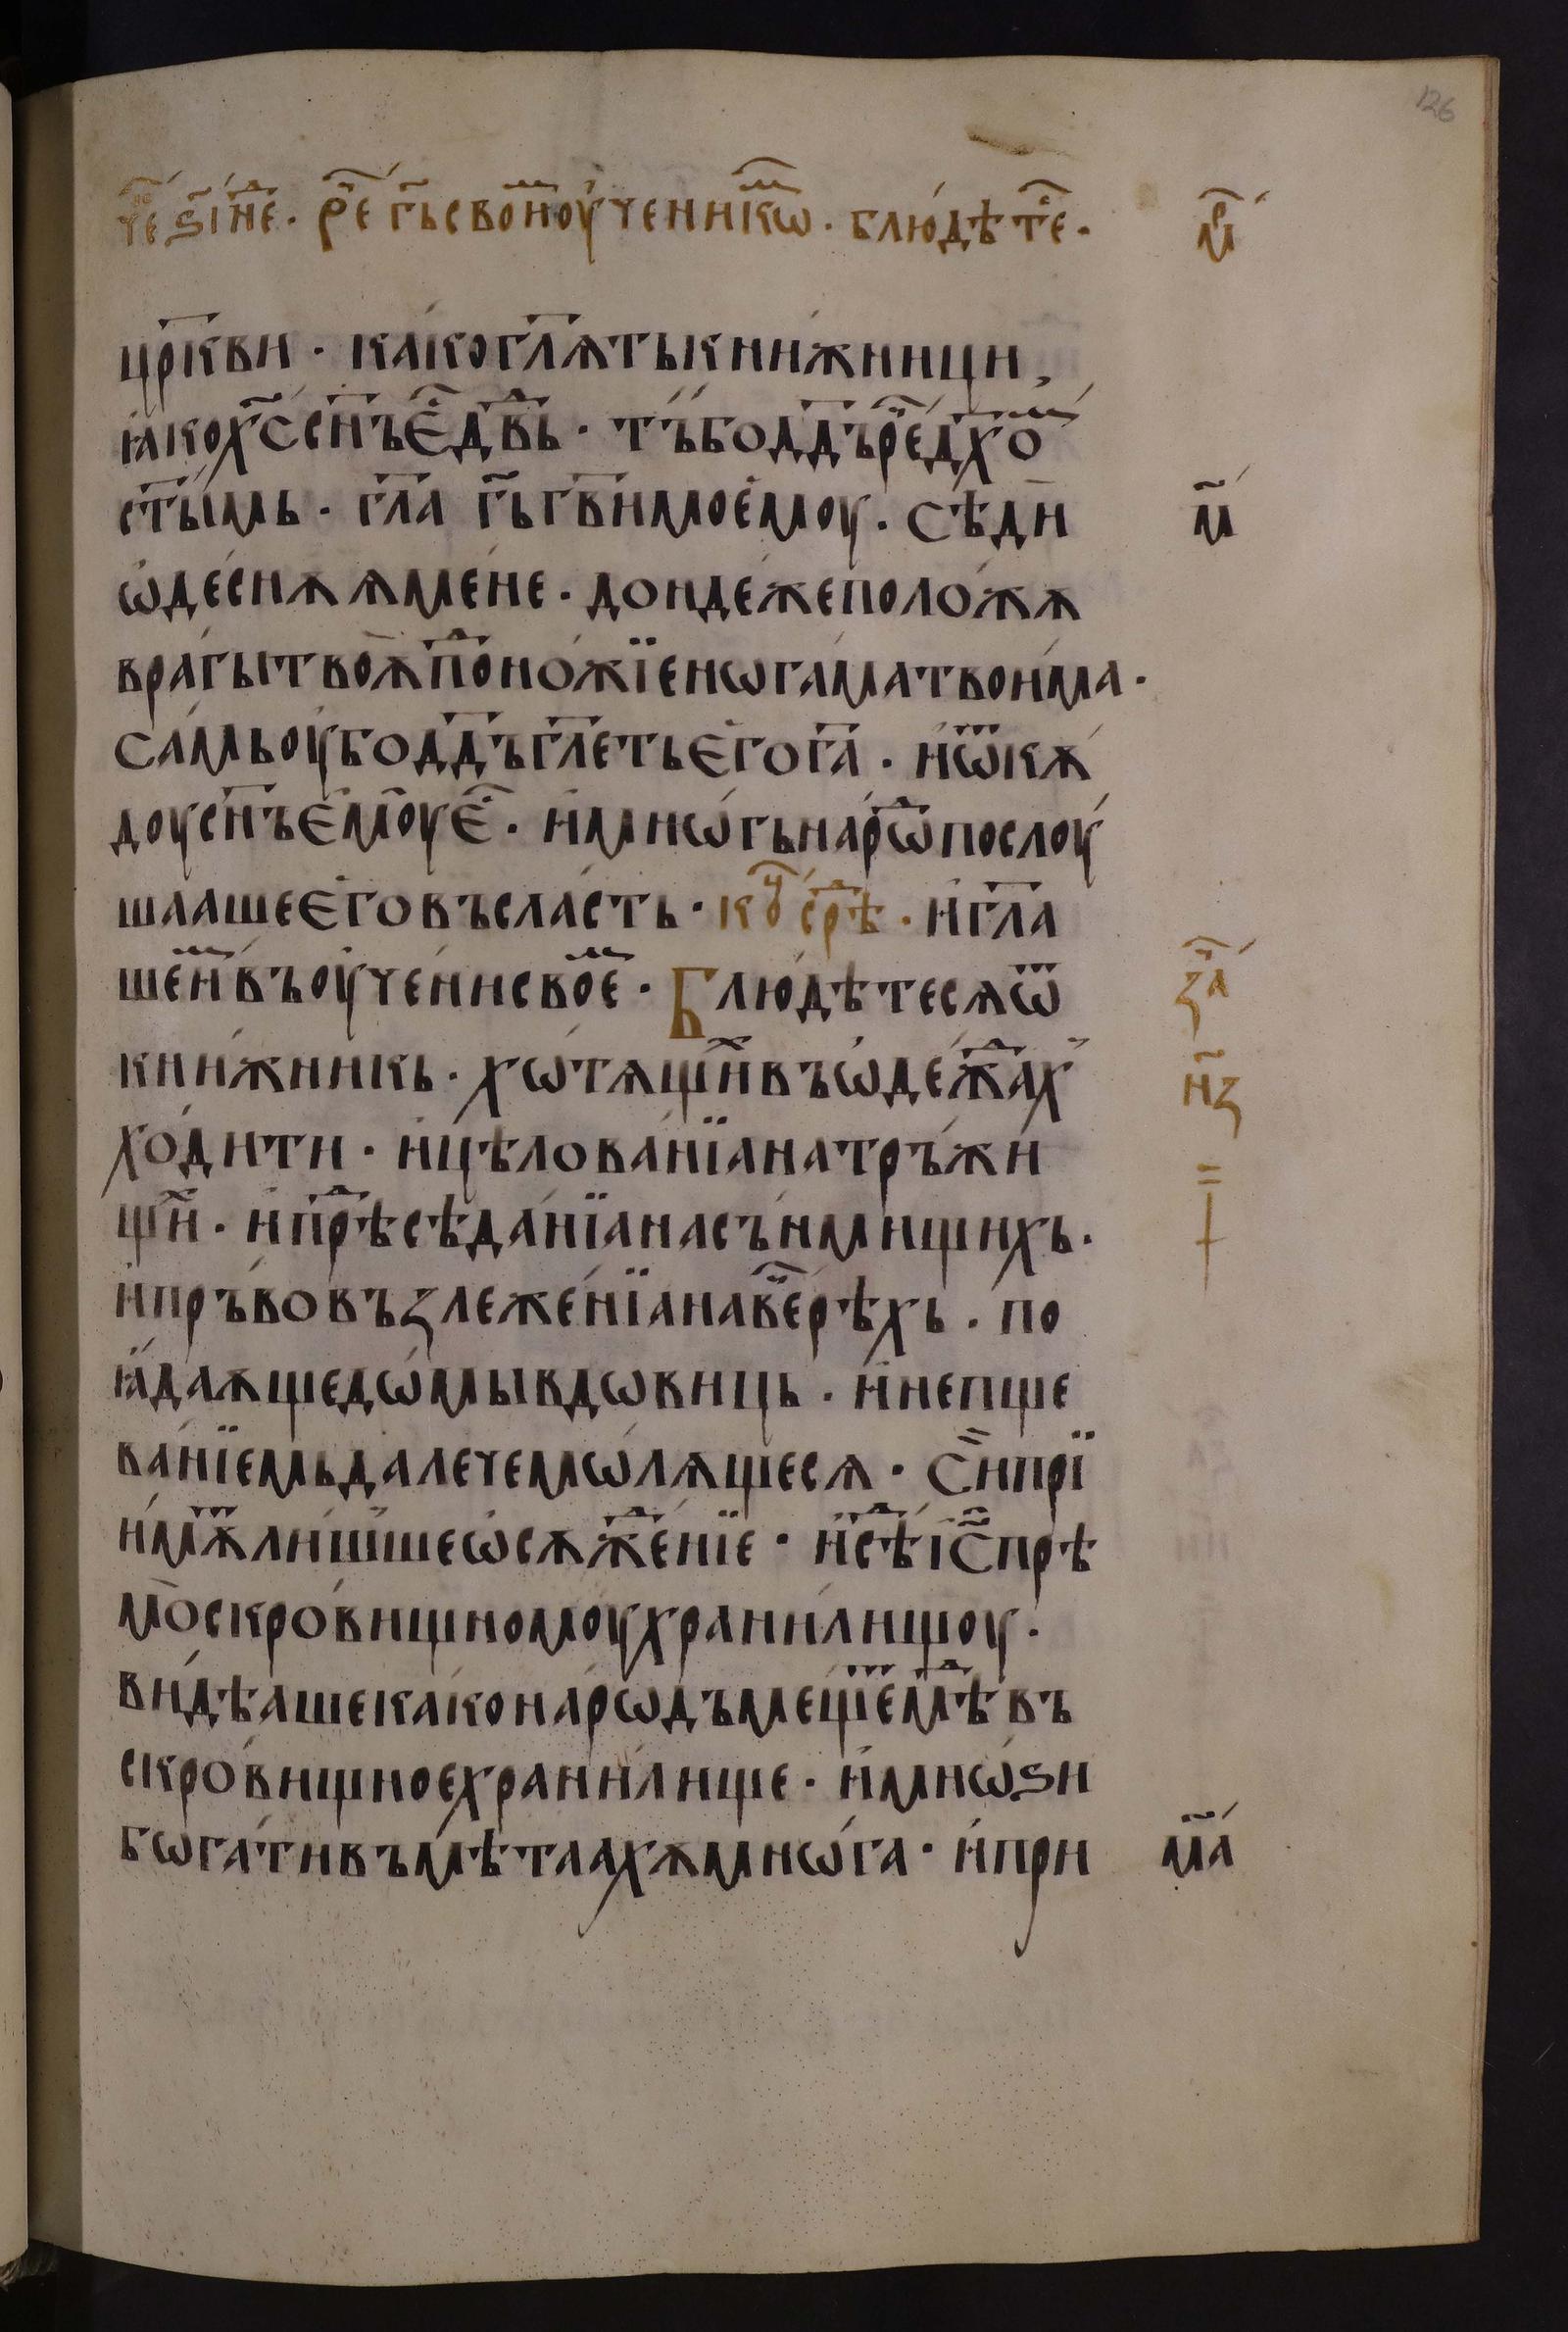 126
че҃ ѕ҃і не҃ · рⷱ҇е г҃ь свои́мⷨ оу҆ченикѡⷨ · блю́дѣтⷭ҇е · мⷬ҇
цр҃кви · ка́ко гл҃ѫть кни́жници,
ꙗко х҃с сн҃ъ є҆ⷭ҇ дв҃дь · тъ́ бо дд҃ъ реⷱ҇ дх҃оⷨ
ст҃ы́мь · гл҃а г҃ь гв҃и моемоу · Сѣди м҃
ѡ҆де́снѫѧ мене · дондеже поло́жѫ
врагы твоѫ поⷣно́жїе ногама твои́ма ·
Са́мь оу҆бо дд҃ъ гл҃еть є҆го га҃ · и҆ ѿкѫ́
доу сн҃ъ є҆моу є҆ⷭ҇ · и҆ мнѡ́гь нарѡⷣ послоу
шааше є҆го въ сла́сть · коⷰ҇ срⷣѣ · и҆ гл҃а
шеⷨ и҆ въ оу҆че́ни своеⷨ · Блю́дѣтесѧ ѿ заⷱ҇
кни́жникь · хѡтѧщиⷯ въ ѡ҆де́ждах н҃з
ходити · и҆ цѣлова́нїа на тръ́жи
щиⷯ · и҆ прⷣѣсѣда́нїа на съни́мищихь ·
и҆ пръ́во възлеже́нїа на веⷱ҇рѣхь · по
ꙗ҆даѫще дѡмы вдѡвиць · и҆ непще
ва́нїемь далече мѡлѧщесѧ · Си прї
и́мѫⷮ ли́шше ѡ҆сѫжⷣе́нїе · и҆ сѣⷣ і҆с҃ прѣ
мо скро́вищномоу храни́лищоу ·
ви́дѣаше ка́ко нарѡдъ мещеⷮ мѣⷣ въ
скро́вищное храни́лище · и҆ мнѡ́ѕи
бѡга́ти въмѣтаахѫ мнѡ́га · и҆ при м҃а